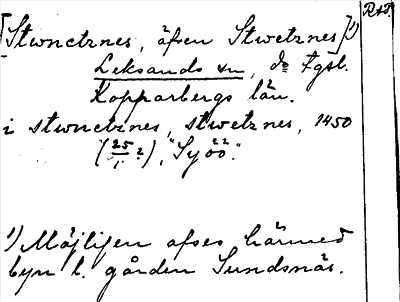 [Stwnctznes, äfven Stwetznes]¹) R.A.P.
Leksands sn, do Fgsl.
Kopparbergs län.
i stwnctznes, stwetznes, 1450
(25/1 ?), "Syöö".
¹) Möjligen afses härmed
byn l. gården Sundsnäs.